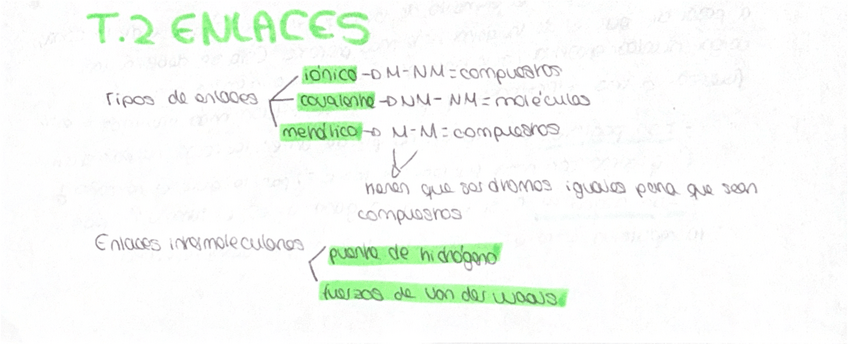 T.2 ENLACES
Tipos de enlaces
iónico → M-NM = compuestos
covalente → NM-NM = moléculas
metálico → M-M = compuestos
tienen que ser átomos iguales para que sean
compuestos
Enlaces intermoleculares
puente de hidrógeno
fuerzas de van der waals